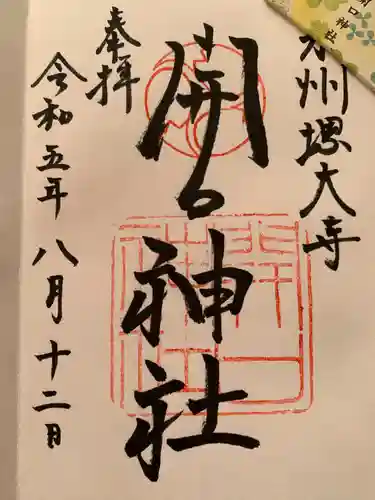 州堺大寺
開口神社
奉拝
令和五年八月十二日
開口神社
口神社